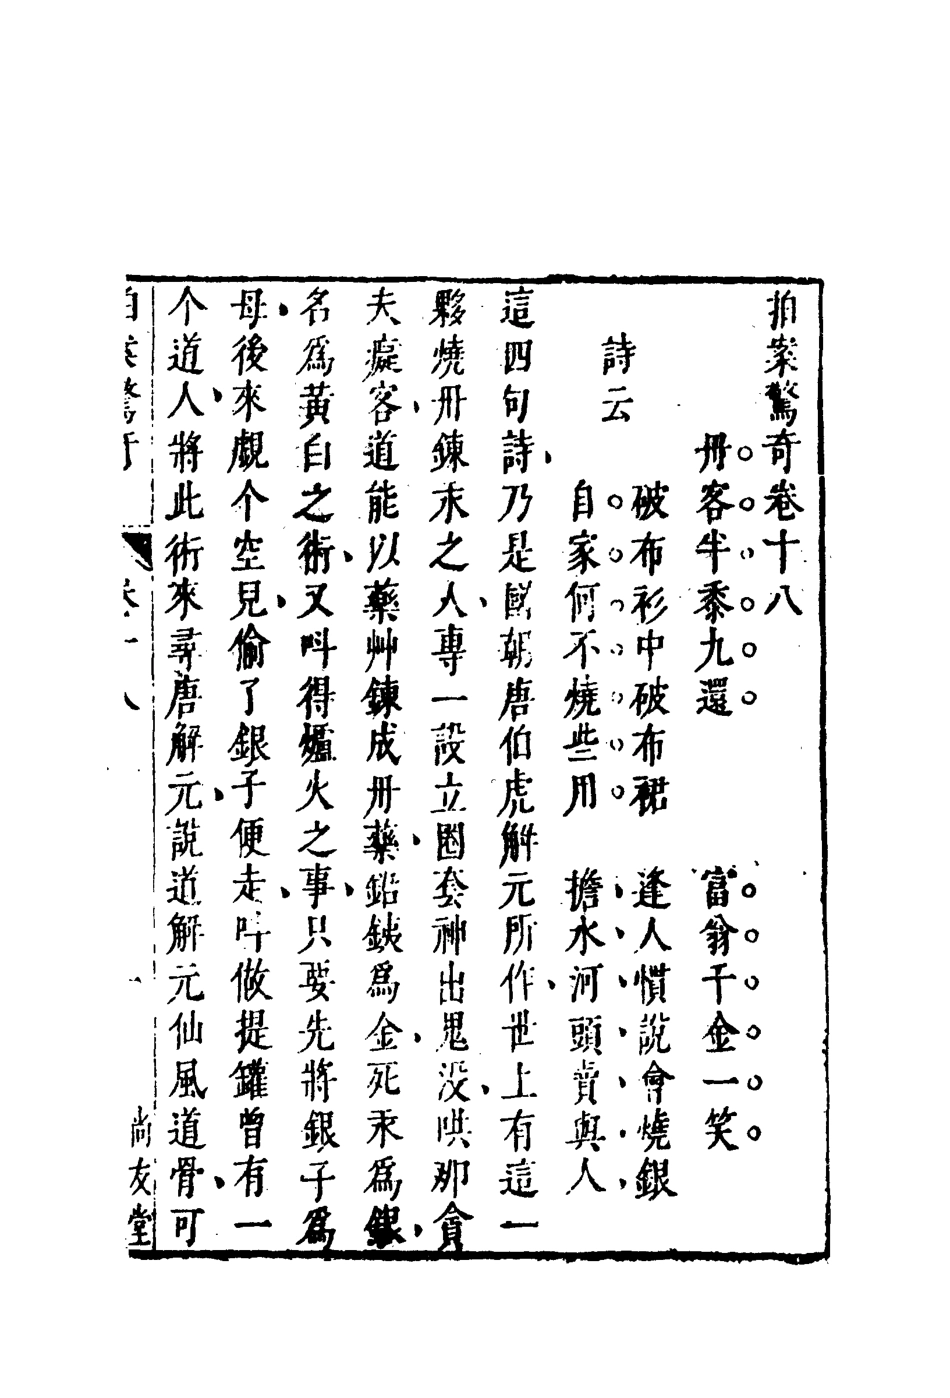 拍案驚奇卷十八
丹客半黍九還　富翁千金一笑
詩云
破布衫中破布裙　逢人慣說會燒銀
自家何不燒些用　擔水河頭賣與人
這四句詩乃是國朝唐伯虎解元所作世上有這一
夥燒丹鍊汞之人專一設立圈套神出鬼没哄那貪
夫癡客道能以藥艸鍊成丹藥鉛鉄爲金死汞爲銀
名爲黃白之術又呌得爐火之事只要先將銀子爲
母後來覷个空兒偷了銀子便走呌做提罐曾有一
个道人將此術來尋唐解元說道解元仙風道骨可
拍案驚奇　卷十八　一　尚友堂